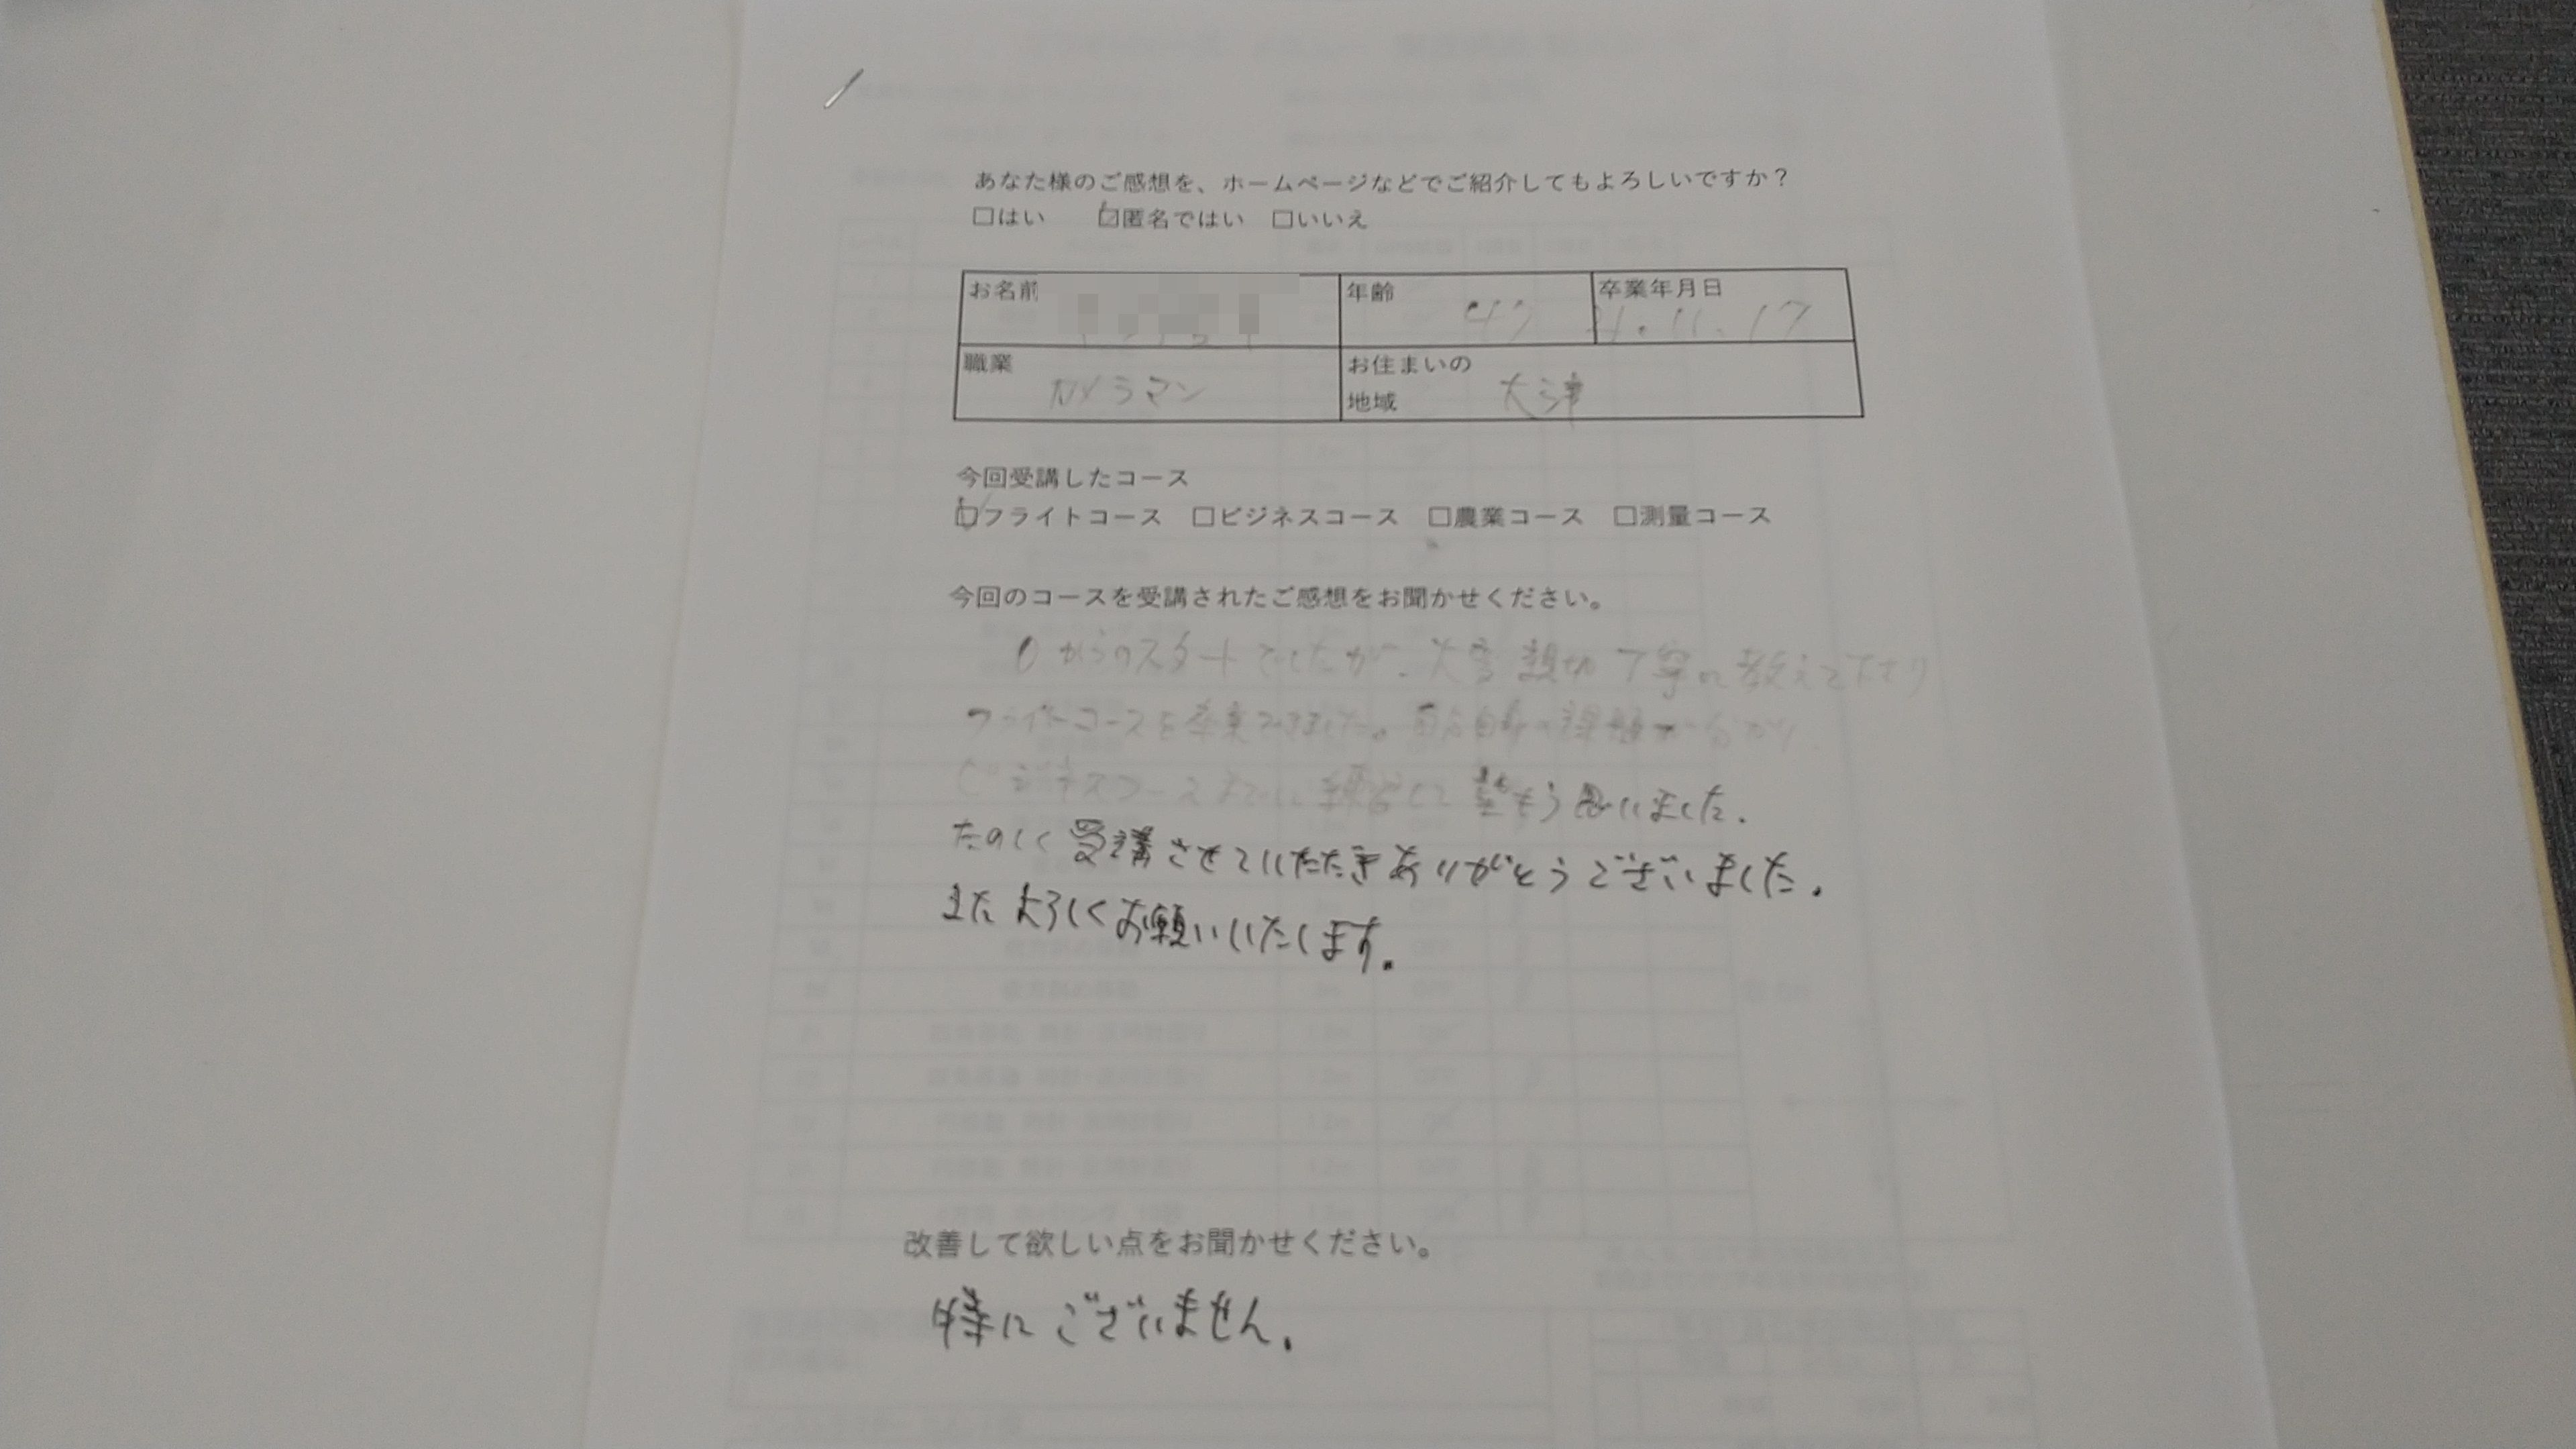 あなた様のご感想を、ホームページなどでご紹介してもよろしいですか？
□はい ☑匿名ではい □いいえ
お名前 年齢 47 卒業年月日 11.17
職業 カメラマン お住まいの地域 大津
今回受講したコース
☑フライトコース □ビジネスコース □農業コース □測量コース
今回のコースを受講されたご感想をお聞かせください。
0からのスタートでしたが、大変親切丁寧に教えて下さり
フライトコースを卒業できました。自分自身の課題が分かり
ビジネスコースまでに練習して 思いました。
たのしく受講させていただきありがとうございました。
またよろしくお願いいたします。
改善して欲しい点をお聞かせください。
特にございません。